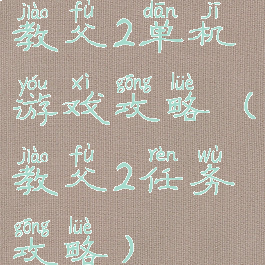 jiào fù dān jī
教父2单机
yóu xì gōng lüè
游戏攻略(
jiào fù rèn wù
教父2任务
gōng lüè
攻略)